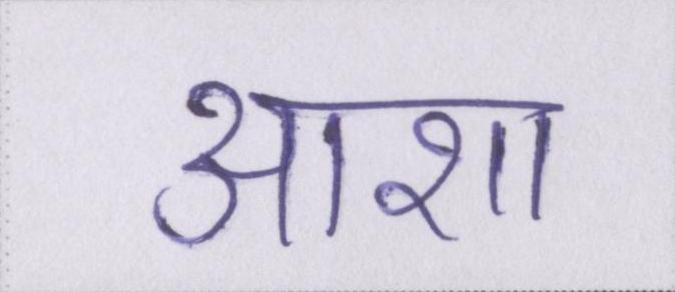 आशा